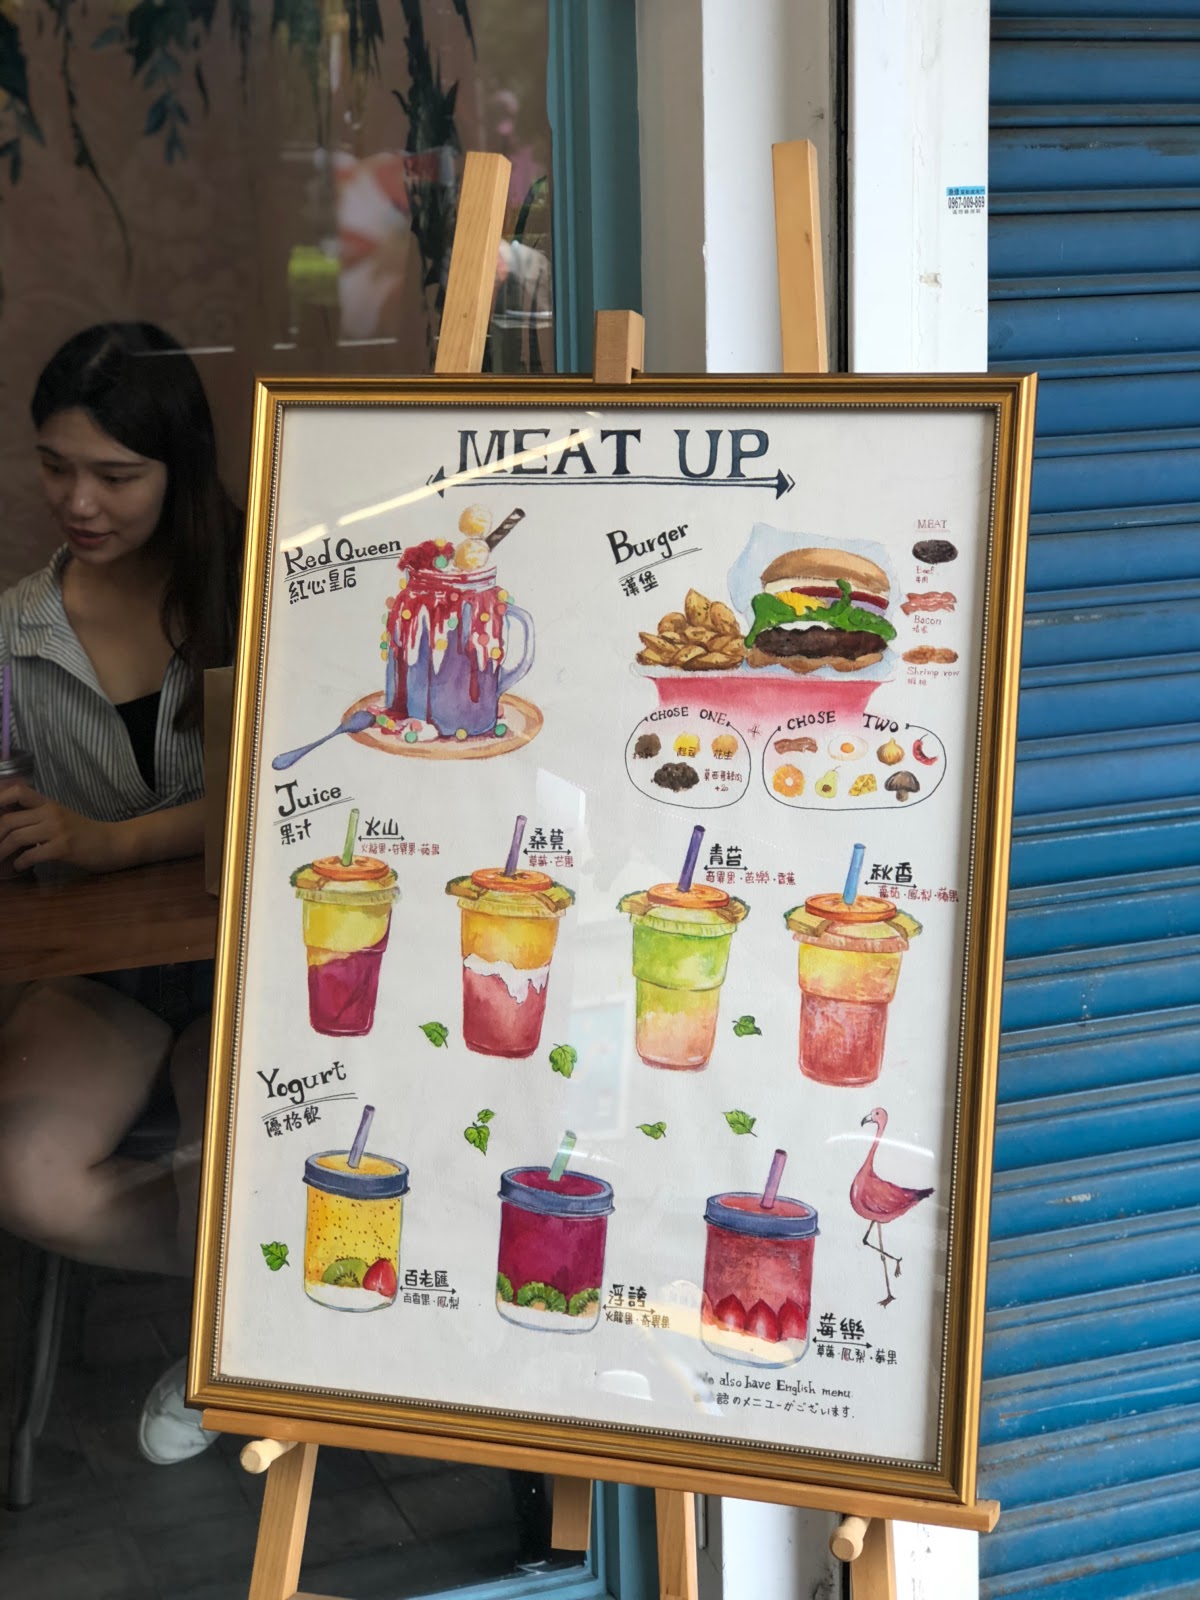 MEAT UP
Red Queen
紅心皇后
Burger
漢堡
MEAT
Beef
牛肉
Bacon
培根
Shrimp row
蝦排
CHOSE ONE
+
CHOSE TWO
起司
花生
+20
Juice
果汁
火山
火龍果·奇異果·蘋果
桑莫
草莓·芒果
青苔
奇異果·芭樂·香蕉
秋香
番茄·鳳梨·蘋果
Yogurt
優格飲
百老匯
百香果·鳳梨
浮誇
火龍果·奇異果
莓樂
草莓·鳳梨·莓果
also have English menu.
語のメニューがございます.
0967-009-869